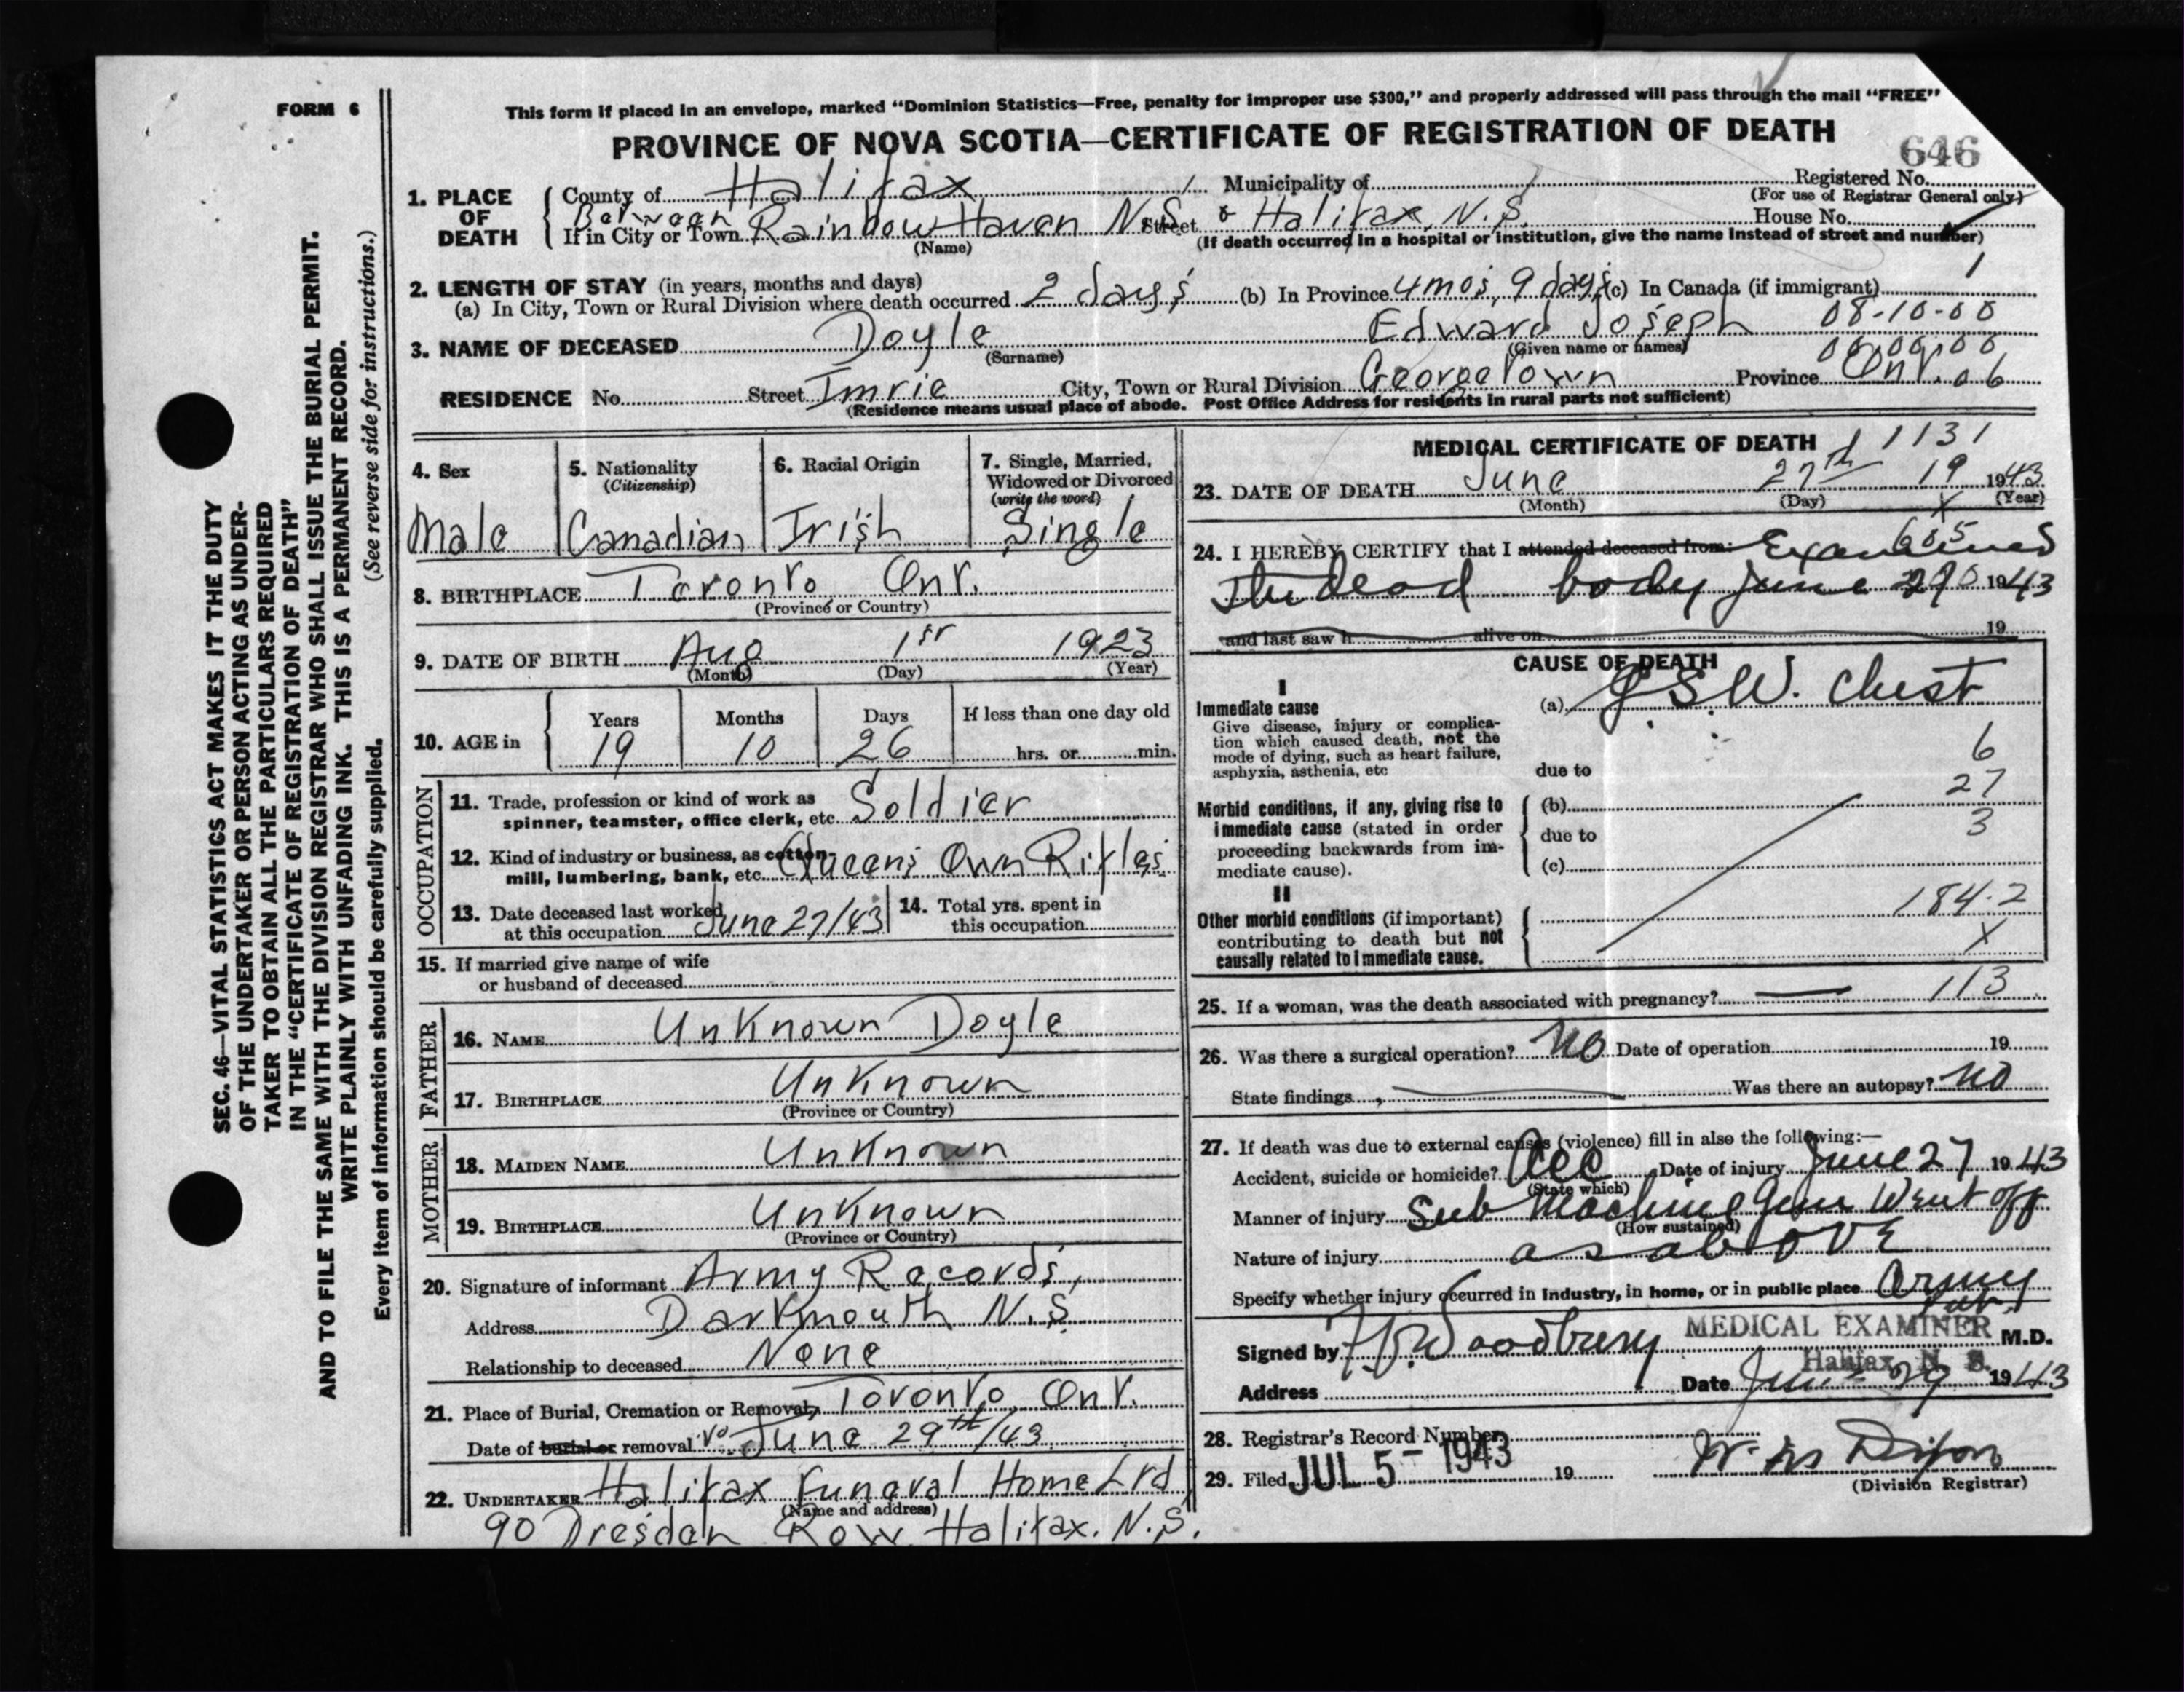 FORM 6
This form if placed in an envelope, marked "Dominion Statistics—Free, penalty for improper use $300," and properly addressed will pass through the mail "FREE"
PROVINCE OF NOVA SCOTIA—CERTIFICATE OF REGISTRATION OF DEATH
646
1. PLACE OF DEATH { County of Halifax Municipality of Registered No.
(For use of Registrar General only)
Between
If in City or Town Rainbow Haven N.S. Street & Halifax, N.S. House No.
(Name) (If death occurred in a hospital or institution, give the name instead of street and number)
2. LENGTH OF STAY (in years, months and days)
(a) In City, Town or Rural Division where death occurred 2 days (b) In Province 4 mos, 9 days (c) In Canada (if immigrant) 1
08-10-00
3. NAME OF DECEASED Doyle Edward Joseph
(Surname) (Given name or names) 00.00.00
RESIDENCE No. Street Imrie City, Town or Rural Division Georgetown Province Ont. 06
(Residence means usual place of abode. Post Office Address for residents in rural parts not sufficient)
4. Sex Male
5. Nationality (Citizenship) Canadian
6. Racial Origin Irish
7. Single, Married, Widowed or Divorced (write the word) Single
8. BIRTHPLACE Toronto Ont.
(Province or Country)
9. DATE OF BIRTH Aug 1st 1923
(Month) (Day) (Year)
10. AGE in { Years 19 Months 10 Days 26 If less than one day old
hrs. or min.
OCCUPATION
11. Trade, profession or kind of work as
spinner, teamster, office clerk, etc. Soldier
12. Kind of industry or business, as cotton-
mill, lumbering, bank, etc. Queens Own Rifles
13. Date deceased last worked
at this occupation June 27/43
14. Total yrs. spent in
this occupation
15. If married give name of wife
or husband of deceased
FATHER
16. NAME Unknown Doyle
17. BIRTHPLACE Unknown
(Province or Country)
MOTHER
18. MAIDEN NAME Unknown
19. BIRTHPLACE Unknown
(Province or Country)
20. Signature of informant Army Records,
Address Dartmouth N.S.
Relationship to deceased None
21. Place of Burial, Cremation or Removal, Toronto, Ont.
Date of burial or removal to June 29th/43
22. UNDERTAKER Halifax Funeral Home Ltd
(Name and address)
90 Dresden Row, Halifax. N.S.
MEDICAL CERTIFICATE OF DEATH
1131
23. DATE OF DEATH June 27th 19 1943
(Month) (Day) (Year)
X
605
24. I HEREBY CERTIFY that I attended deceased from: Examined
The dead body June 1943
and last saw h alive on 19
CAUSE OF DEATH
I
Immediate cause
Give disease, injury or complica-
tion which caused death, not the
mode of dying, such as heart failure,
asphyxia, asthenia, etc
(a) G.S.W. Chest
6
due to
27
Morbid conditions, if any, giving rise to
immediate cause (stated in order
proceeding backwards from im-
mediate cause).
(b)
due to 3
(c)
II
Other morbid conditions (if important)
contributing to death but not
causally related to immediate cause.
184.2
X
25. If a woman, was the death associated with pregnancy? — 113
26. Was there a surgical operation? No Date of operation 19
State findings Was there an autopsy? No
27. If death was due to external causes (violence) fill in also the following:—
Accident, suicide or homicide? Acc Date of injury June 27 1943
(State which)
Manner of injury Sub Machine Gun Went off
(How sustained)
Nature of injury as above
Specify whether injury occurred in industry, in home, or in public place Army
Signed by Woodbury MEDICAL EXAMINER M.D.
Halifax N. S.
Address Date June 29 1943
28. Registrar's Record Number
29. Filed JUL 5 - 1943 19
(Division Registrar)
SEC. 46—VITAL STATISTICS ACT MAKES IT THE DUTY
OF THE UNDERTAKER OR PERSON ACTING AS UNDER-
TAKER TO OBTAIN ALL THE PARTICULARS REQUIRED
IN THE "CERTIFICATE OF REGISTRATION OF DEATH"
AND TO FILE THE SAME WITH THE DIVISION REGISTRAR WHO SHALL ISSUE THE BURIAL PERMIT.
WRITE PLAINLY WITH UNFADING INK. THIS IS A PERMANENT RECORD.
(See reverse side for instructions.)
Every item of information should be carefully supplied.